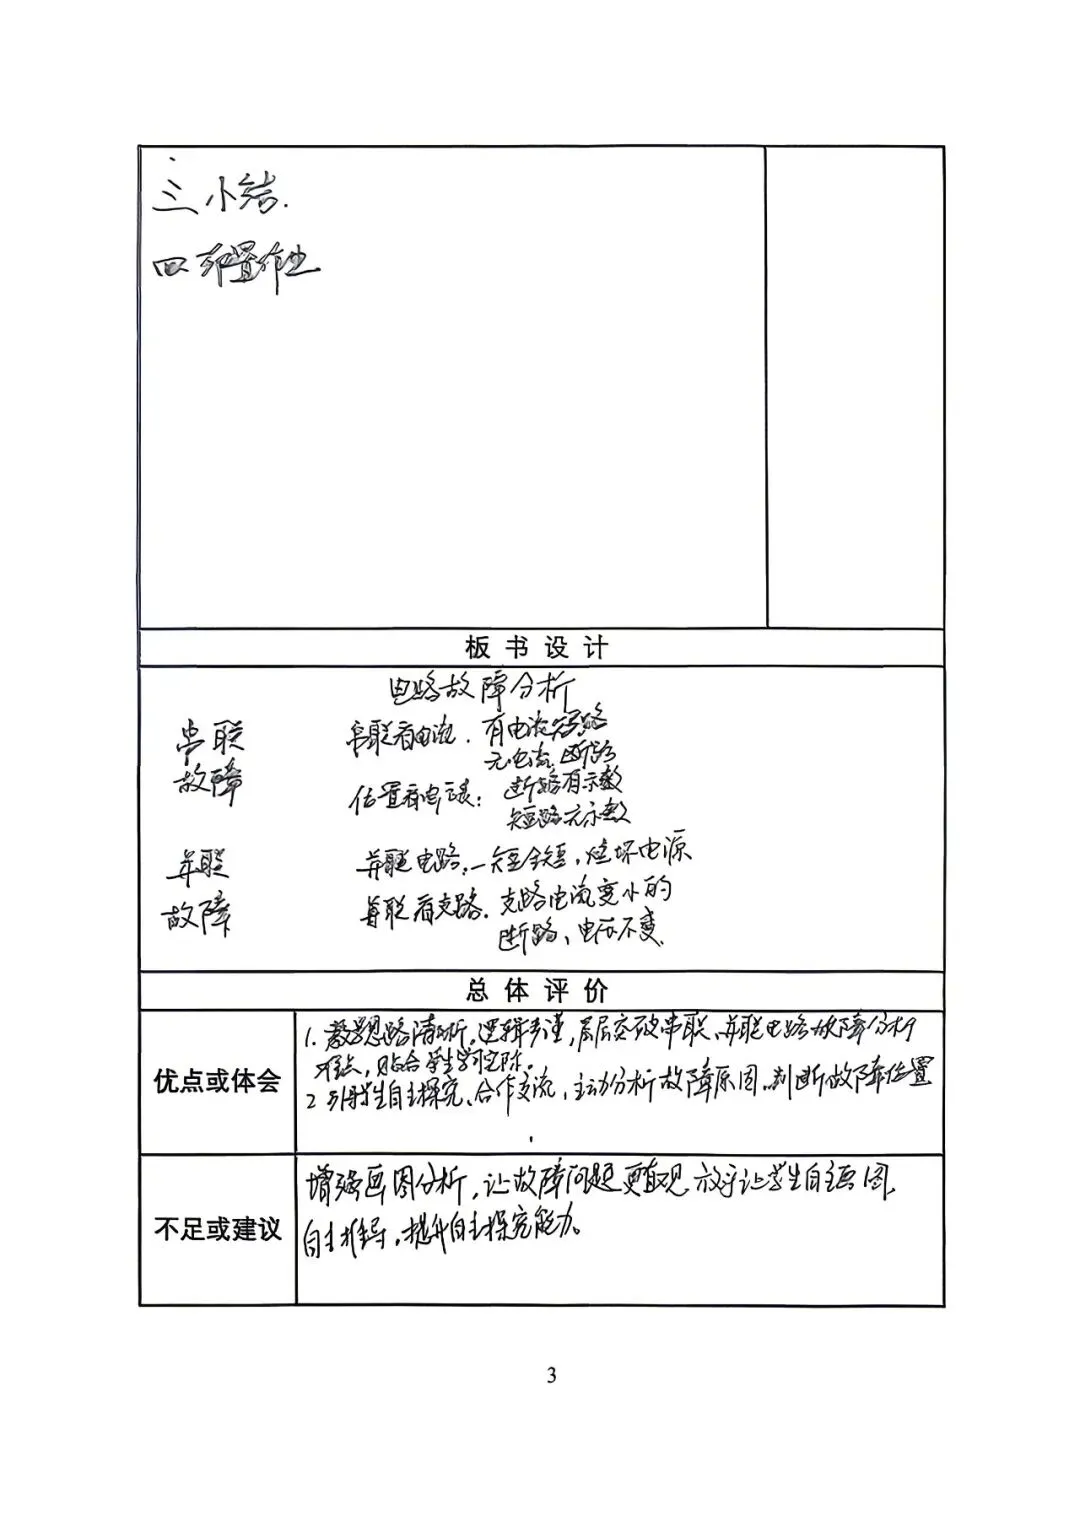 三、小结.
四 布置作业
板书设计
电路故障分析
串联
故障
串联看电流. 有电流短路
无电流断路
位置看电表: 断路有示数
短路无示数
并联
故障
并联电路,一短全短,烧坏电源
并联看支路. 支路电流变小的
断路、电压不变.
总体评价
优点或体会
1. 教学思路清晰,逻辑严谨,层层突破串联、并联电路故障分析
难点,贴合学生学习实际.
2 引导学生自主探究、合作交流,主动分析故障原因,判断故障位置
不足或建议
增强画图分析,让故障问题更直观.放手让学生自主画图,
自主推导,提升自主探究能力。
3